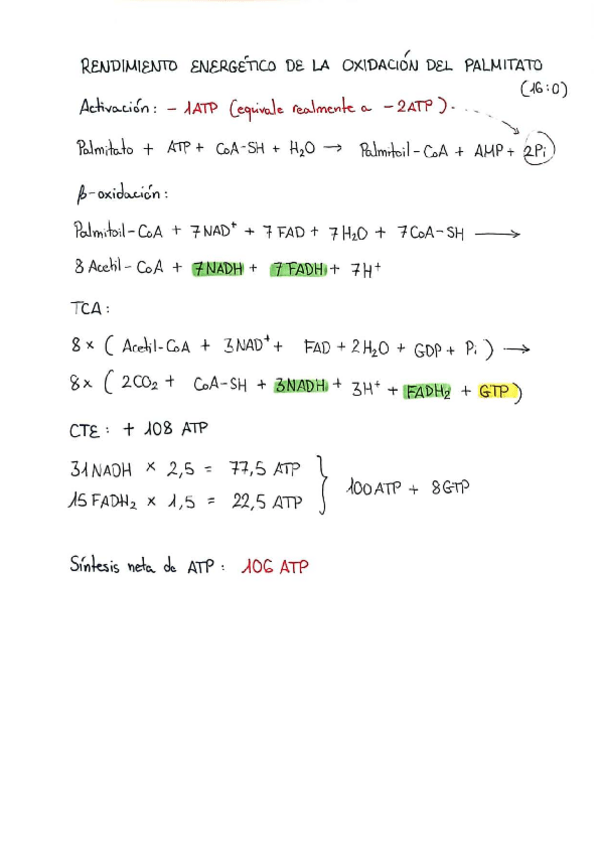 RENDIMIENTO ENERGÉTICO DE LA OXIDACIÓN DEL PALMITATO
(16:0)
Activación: - 1ATP (equivale realmente a - 2ATP).
Palmitato + ATP + CoA-SH + H2O → Palmitoil-CoA + AMP + 2Pi
β-oxidación:
Palmitoil-CoA + 7NAD+ + 7 FAD + 7H2O + 7CoA-SH →
8 Acetil-CoA + 7NADH + 7 FADH + 7H+
TCA:
8 × ( Acetil-CoA + 3NAD+ + FAD + 2H2O + GDP + Pi ) →
8 × ( 2CO2 + CoA-SH + 3NADH + 3H+ + FADH2 + GTP )
CTE: + 108 ATP
31NADH × 2,5 = 77,5 ATP
15FADH2 × 1,5 = 22,5 ATP } 100ATP + 8GTP
Síntesis neta de ATP: 106 ATP